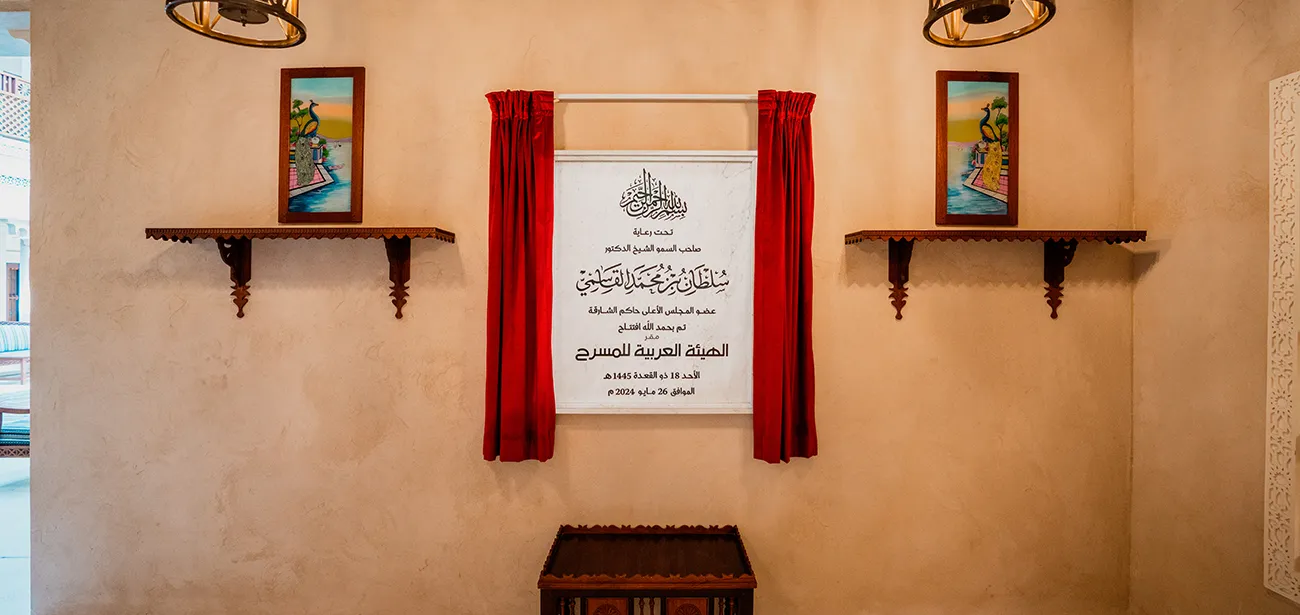 بسم الله الرحمن الرحيم
تحت رعاية
صاحب السمو الشيخ الدكتور
سُلطان بن محمد القاسمي
عضو المجلس الأعلى حاكم الشارقة
تم بحمد الله افتتاح
مقر
الهيئة العربية للمسرح
الأحد 18 ذو القعدة 1445 هـ
الموافق 26 مايو 2024 م